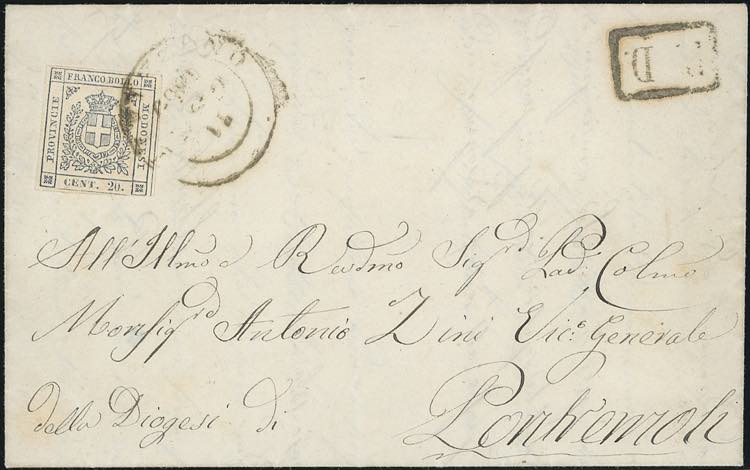 FRANCO BOLLO
PROVINCIE
MODONESI
CENT. 20.
P. D.
All'Illmo e Revdmo Sigrd Pad: Colmo
Monsigrd Antonio Zini Vico Generale
della Diogesi di Pontremoli